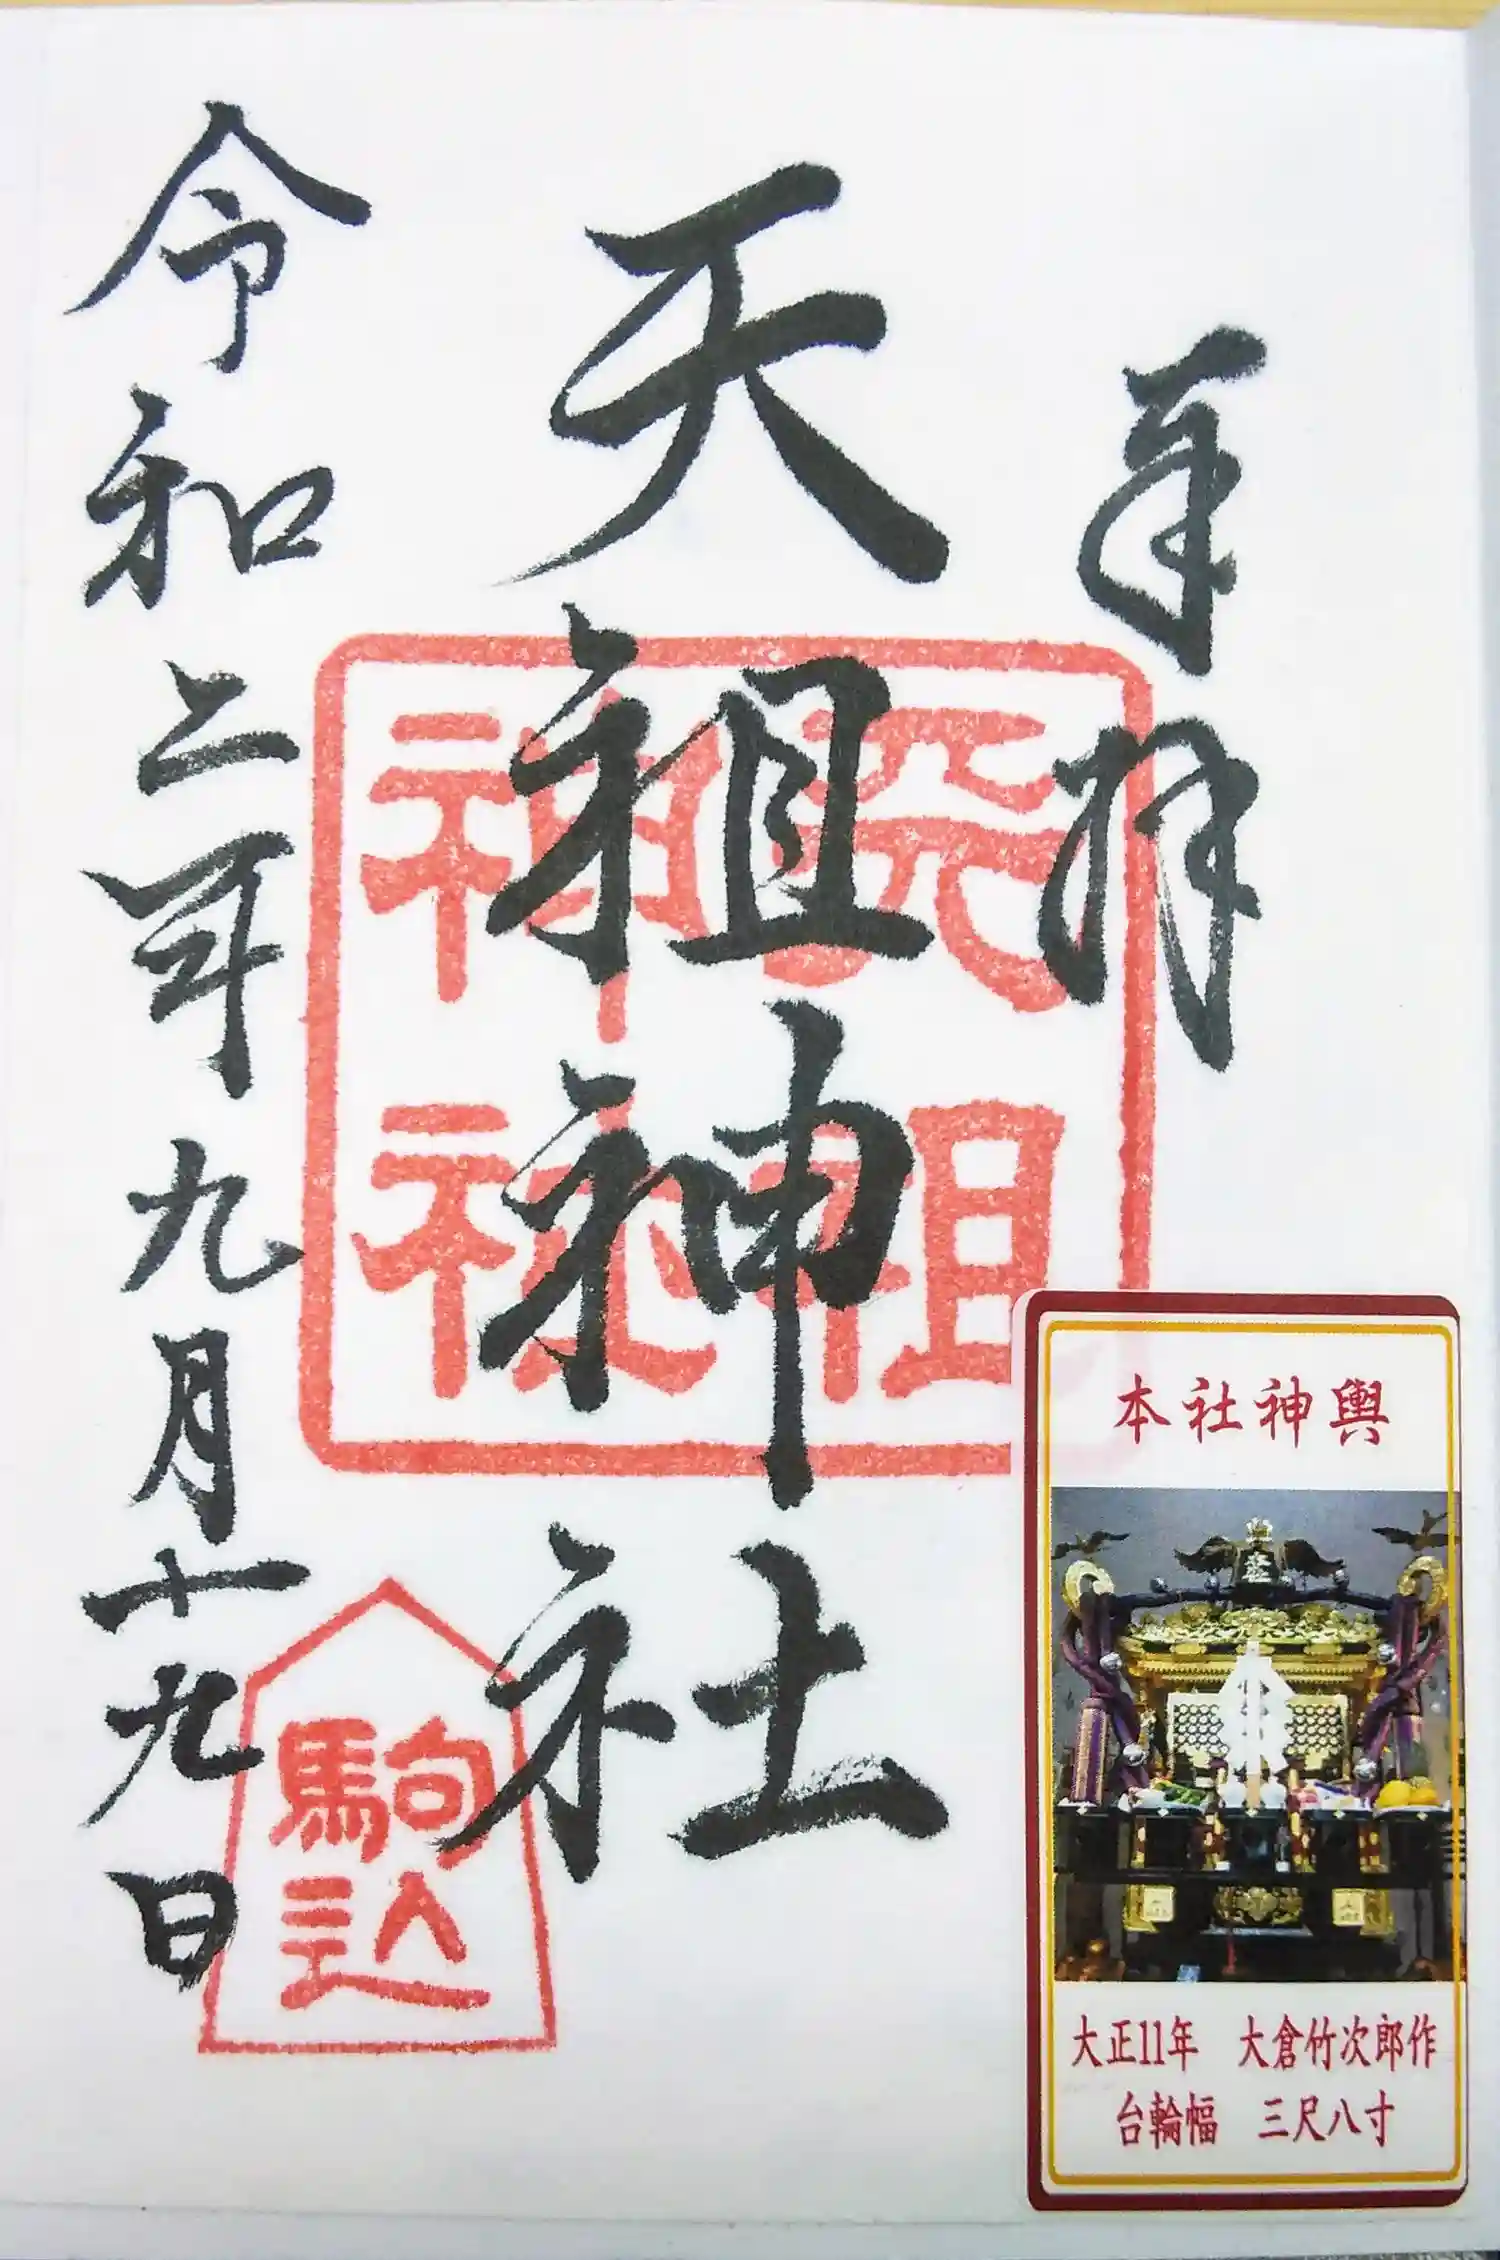 奉拝
天祖神社
天祖
神社
令和二年九月十九日
駒込
本社神輿
大正11年 大倉竹次郎作
台輪幅 三尺八寸